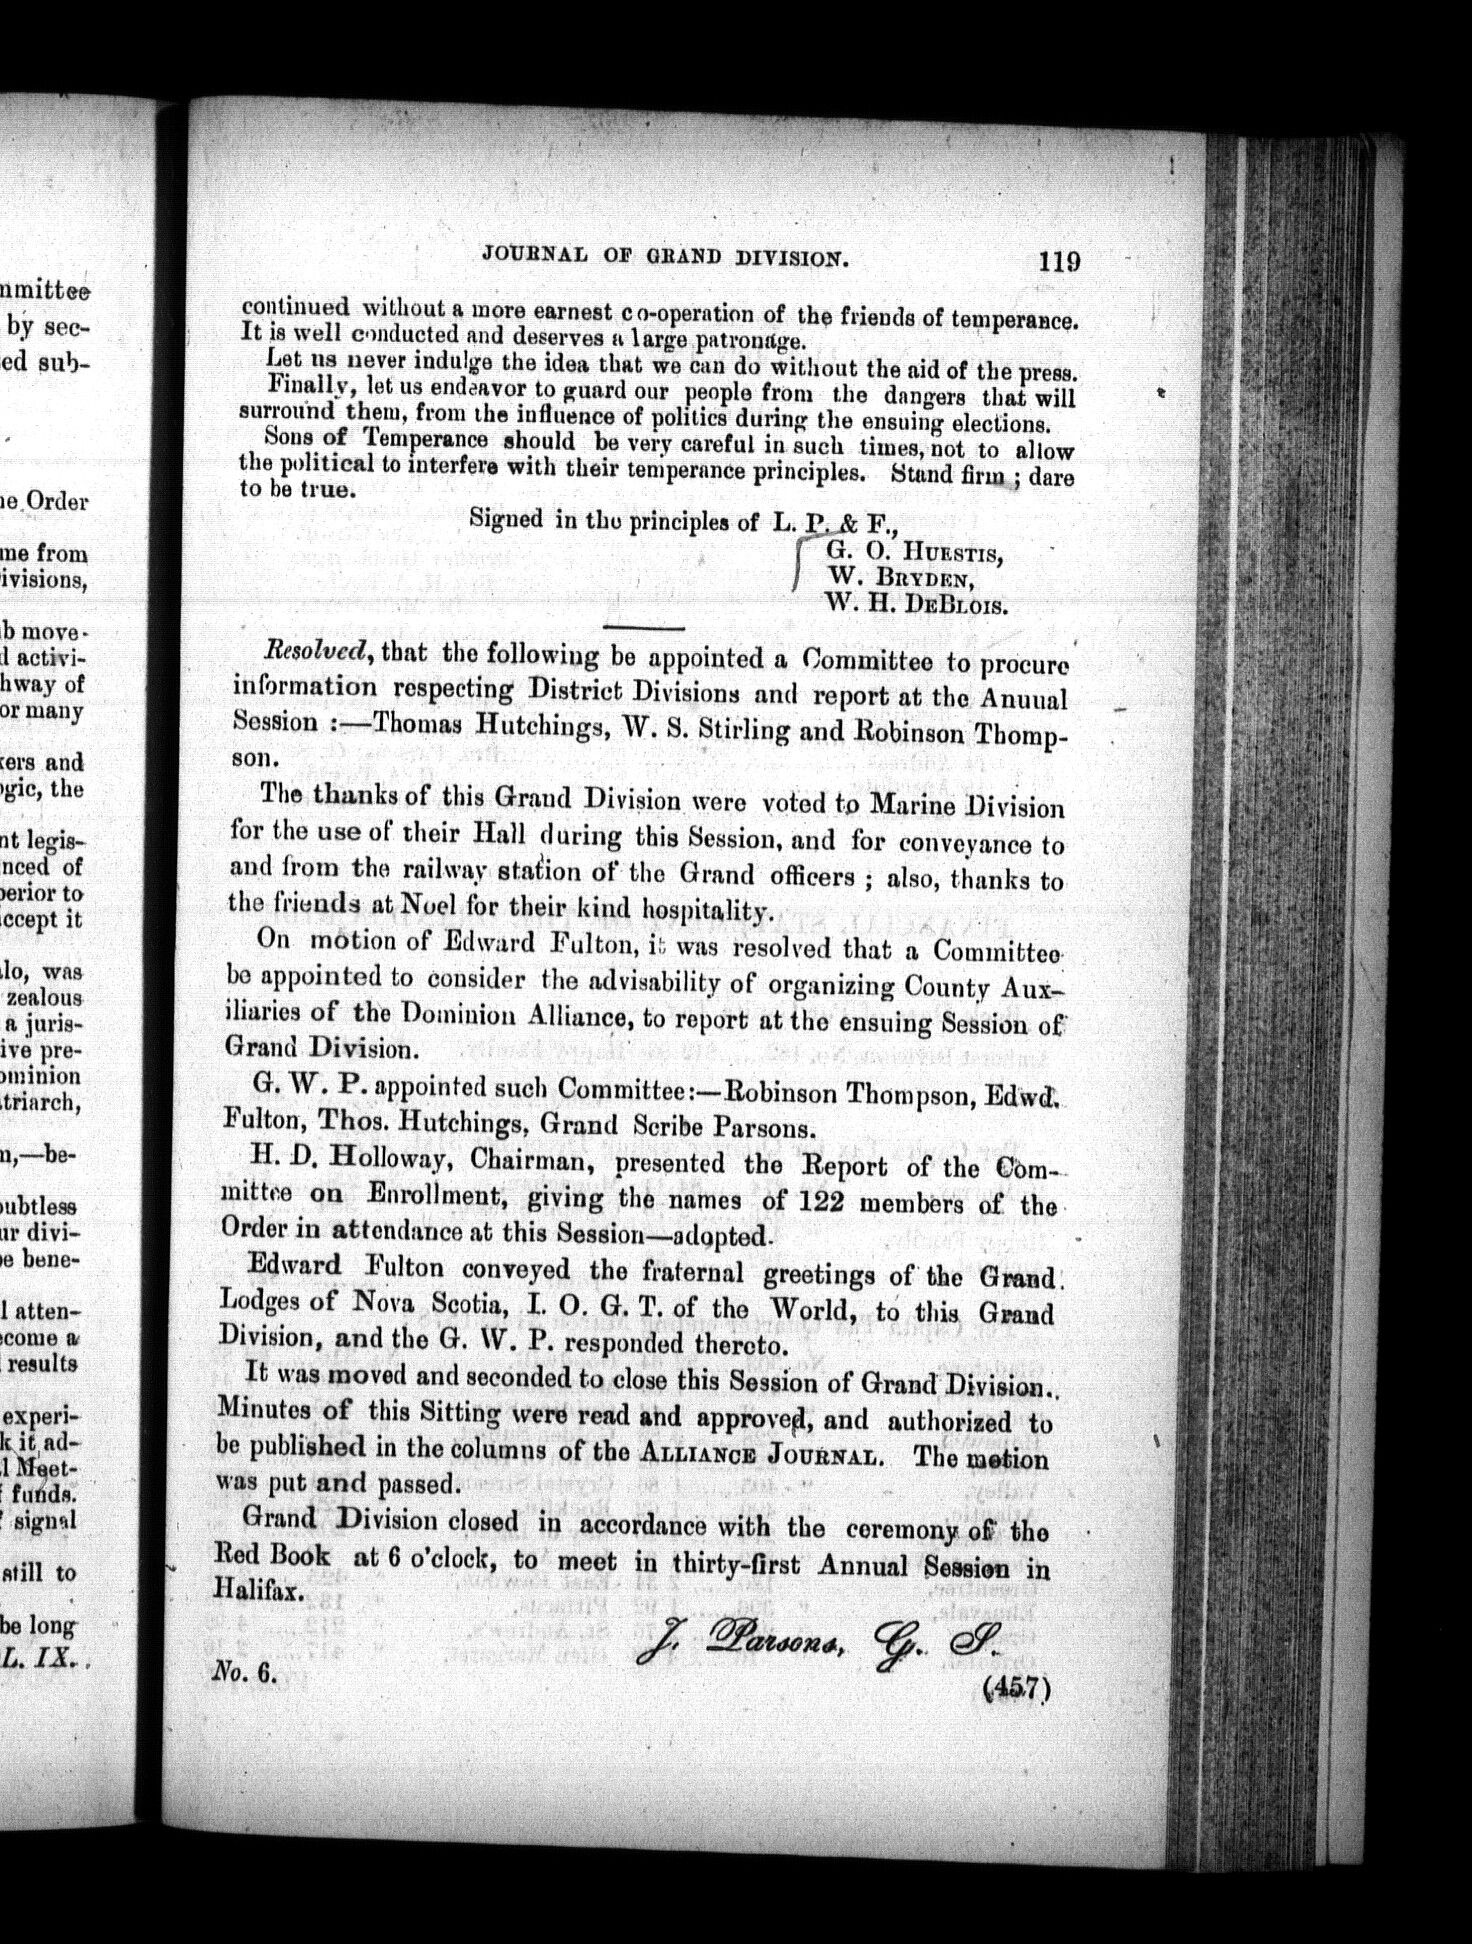 mmittee
by sec-
ed sub-
he Order
me from
ivisions,
b move-
d activi-
hway of
or many
kers and
ogic, the
nt legis-
nced of
perior to
accept it
lo, was
zealous
a juris-
ive pre-
ominion
atriarch,
n,—be-
oubtless
ur divi-
be bene-
l atten-
ecome a
results
experi-
k it ad-
l Meet-
f funds.
f signal
still to
be long
L. IX.
JOURNAL OF GRAND DIVISION. 119
continued without a more earnest co-operation of the friends of temperance.
It is well conducted and deserves a large patronage.
Let us never indulge the idea that we can do without the aid of the press.
Finally, let us endeavor to guard our people from the dangers that will
surround them, from the influence of politics during the ensuing elections.
Sons of Temperance should be very careful in such times, not to allow
the political to interfere with their temperance principles. Stand firm ; dare
to be true.
Signed in the principles of L. P. & F.,
G. O. HUESTIS,
W. BRYDEN,
W. H. DEBLOIS.
Resolved, that the following be appointed a Committee to procure
information respecting District Divisions and report at the Anuual
Session :—Thomas Hutchings, W. S. Stirling and Robinson Thomp-
son.
The thanks of this Grand Division were voted to Marine Division
for the use of their Hall during this Session, and for conveyance to
and from the railway station of the Grand officers ; also, thanks to
the friends at Noel for their kind hospitality.
On motion of Edward Fulton, it was resolved that a Committee
be appointed to consider the advisability of organizing County Aux-
iliaries of the Dominion Alliance, to report at the ensuing Session of
Grand Division.
G. W. P. appointed such Committee:—Robinson Thompson, Edwd.
Fulton, Thos. Hutchings, Grand Scribe Parsons.
H. D. Holloway, Chairman, presented the Report of the Com-
mittee on Enrollment, giving the names of 122 members of the
Order in attendance at this Session—adopted.
Edward Fulton conveyed the fraternal greetings of the Grand
Lodges of Nova Scotia, I. O. G. T. of the World, to this Grand
Division, and the G. W. P. responded thereto.
It was moved and seconded to close this Session of Grand Division.
Minutes of this Sitting were read and approved, and authorized to
be published in the columns of the ALLIANCE JOURNAL. The motion
was put and passed.
Grand Division closed in accordance with the ceremony of the
Red Book at 6 o'clock, to meet in thirty-first Annual Session in
Halifax.
J. Parsons, G. S.
No. 6. (457)